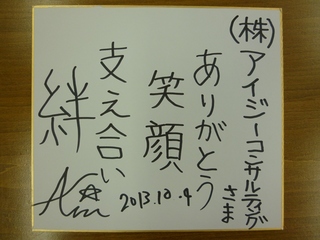 (株)アイジーコンサルティングさま
ありがとう
笑顔
支え合い
絆
2013.10.4